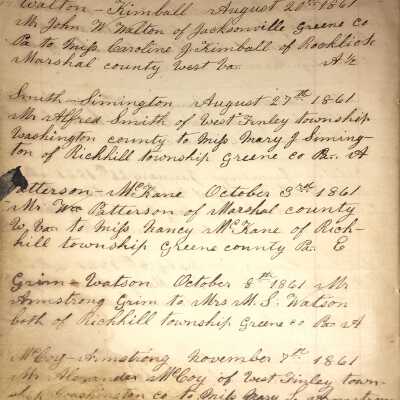 Walton - Kimball August 20th 1861
Mr John W Walton of Jacksonville Greene co
Pa to Miss Caroline J. Kimball of Rocklick
Marshal county West Va.
Smith - Simington August 27th 1861
Mr Alfred Smith of West Finley township
Washington county to Miss Mary J Siming-
ton of Richhill township Greene co Pa. A
Patterson - McKane October 3rd 1861
Mr Wm Patterson of Marshal county
W, Va. to Miss Nancy McKane of Rich-
hill township Greene county Pa. E
Grim = Watson October 8th 1861 Mr
Armstrong Grim to Mrs M. S. Watson
both of Richhill township Greene co Pa A
McCoy - Armstrong November 7th 1861
Mr Alexander McCoy of West Finley town-
ship Washington co to Miss Mary